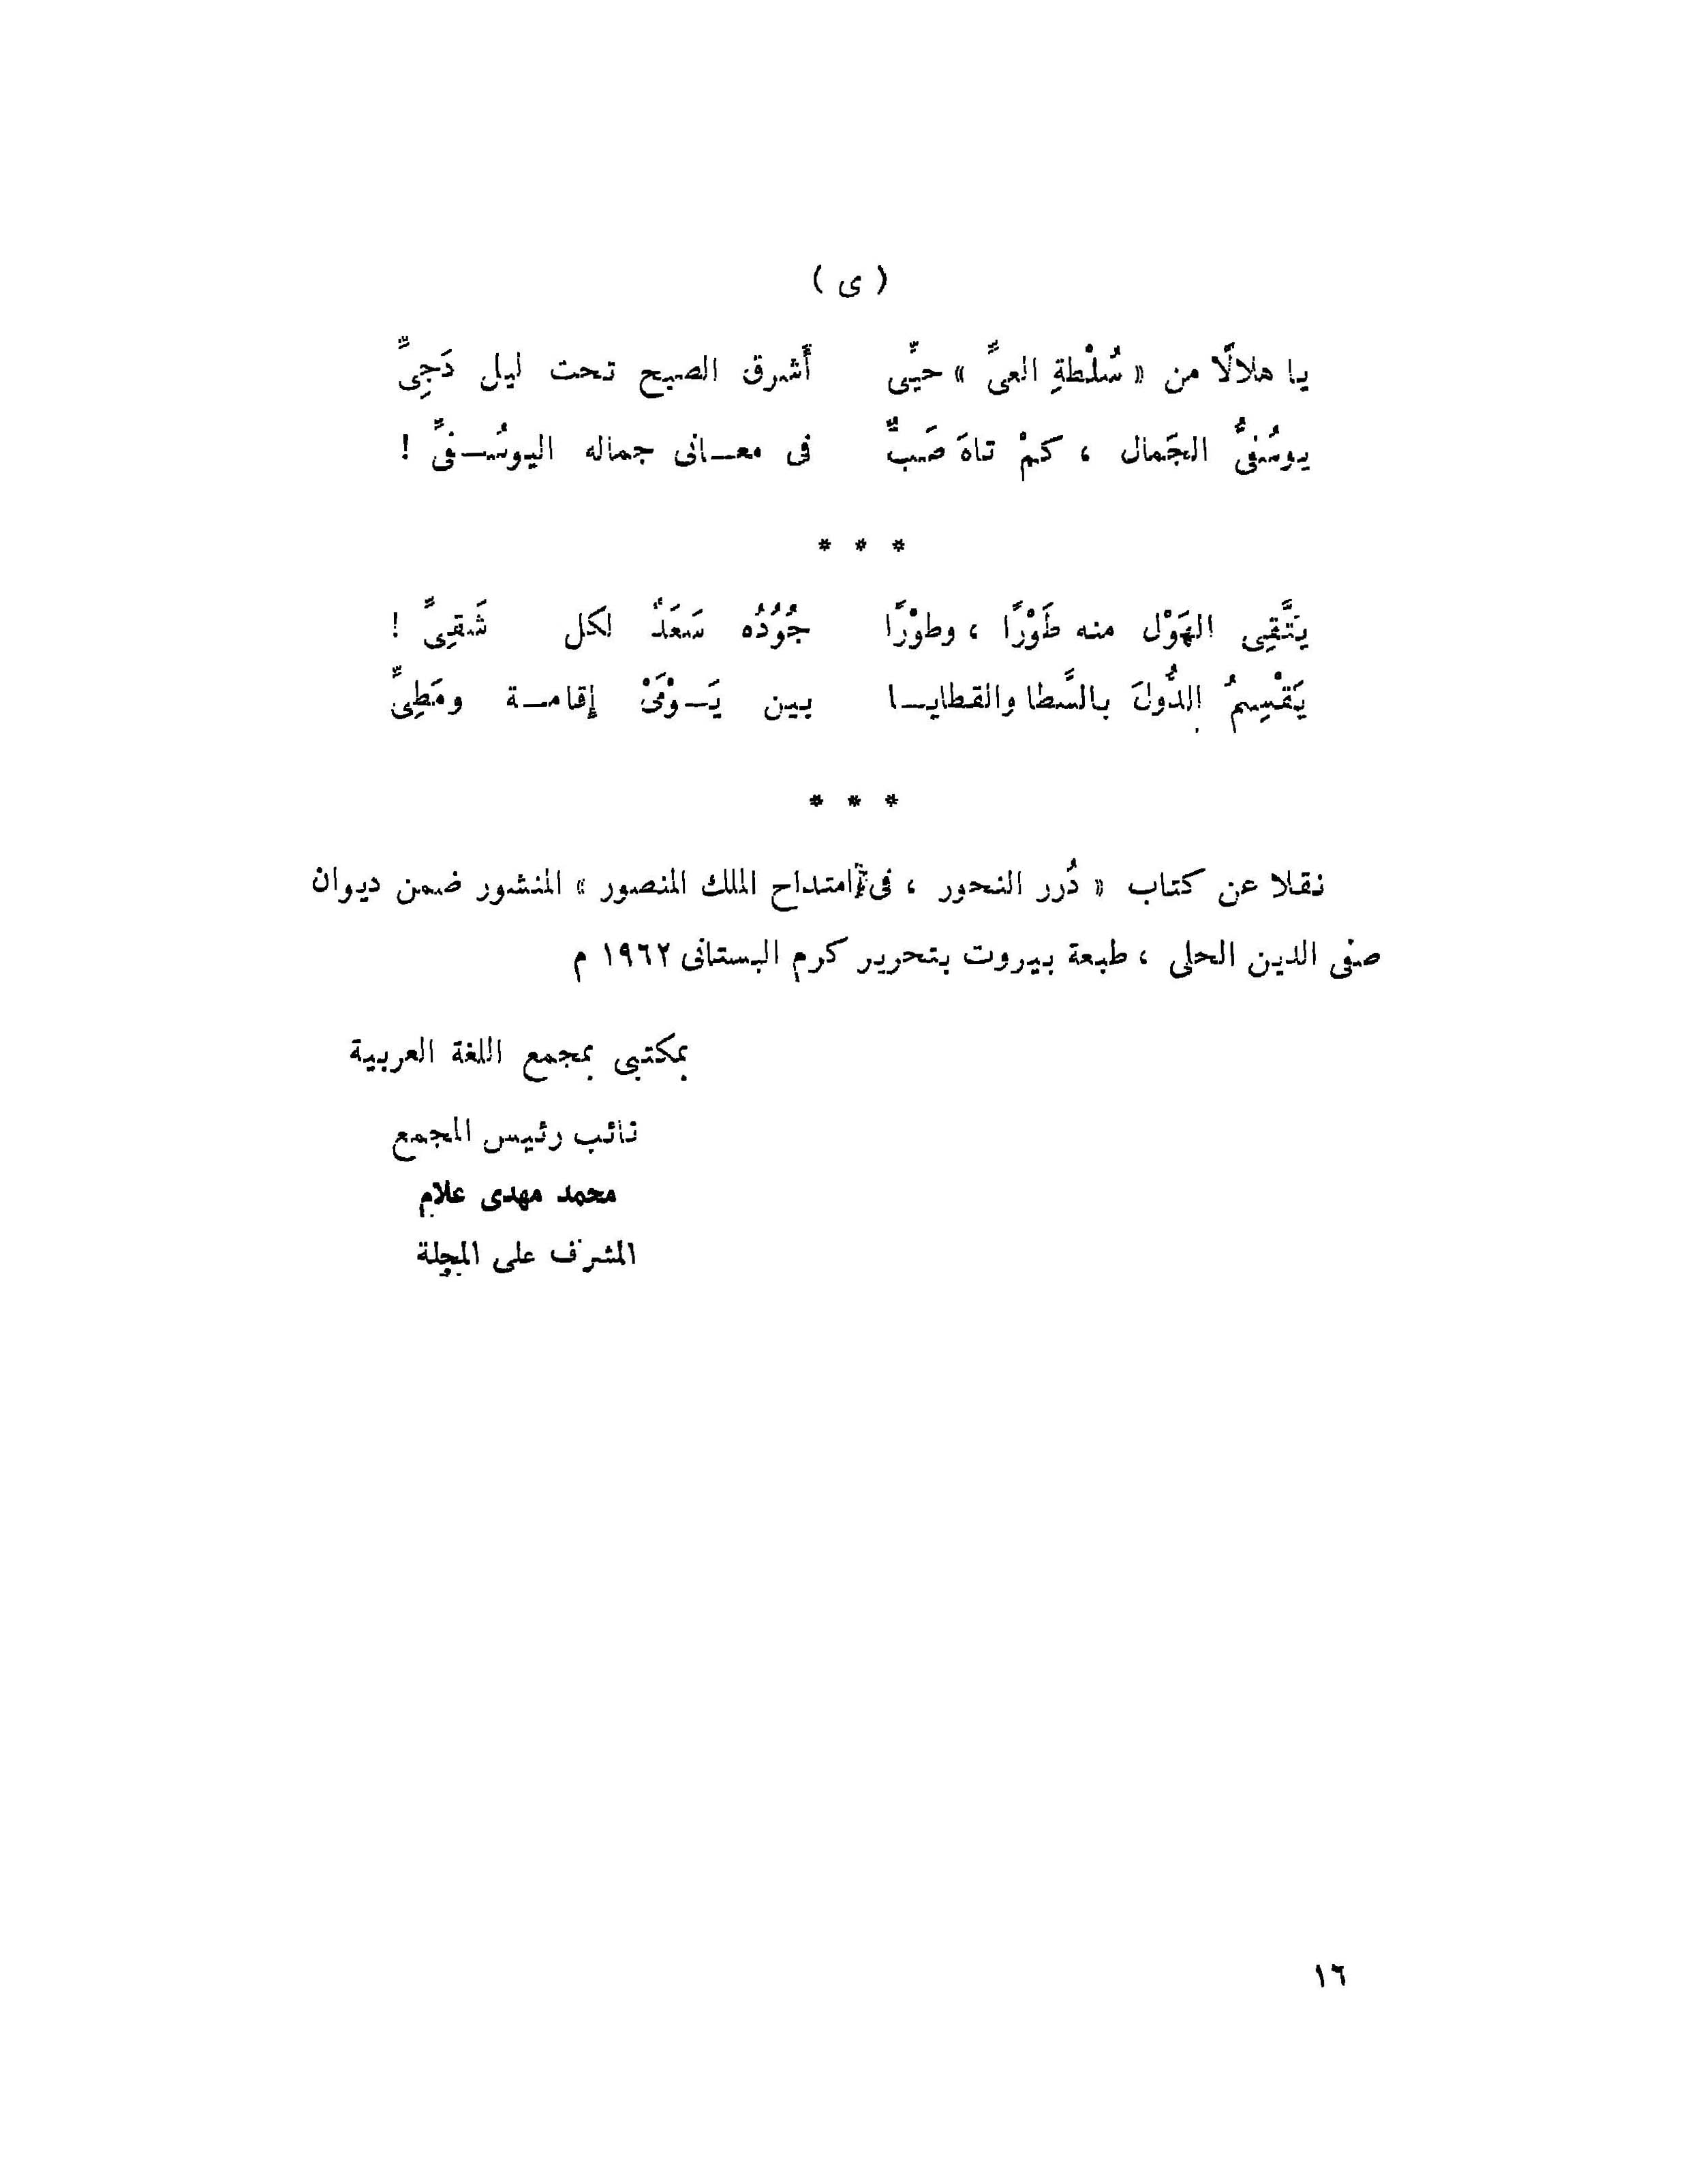 ( ى )
يا هلالًا من « سُلْطةِ العىِّ » حيِّى أَشرق الصبح تحت ليل دَجِىِّ
يوسُفىُّ الجَمال ، كمْ تاهَ صَبٌّ فى معـانى جماله اليوسُـفىِّ !
* * *
يَتَّقِى الهَوْل منه طَوْرًا ، وطوْرًا جُوُدُه سَعَدٌ لكل شَقِىِّ !
يَقْسِمُ الدُّولَ بالسَّطا والقطايـا بين يَـوْمَىْ إقامـة ومَطِىِّ
* * *
نقلا عن كتاب « دُرر النحور ، فى امتداح الملك المنصور » المنشور ضمن ديوان
صفى الدين الحلى ، طبعة بيروت بتحرير كرم البستانى ١٩٦٢ م
بمكتبى بمجمع اللغة العربية
نائب رئيس المجمع
محمد مهدى علام
المشرف على المجلة
١٦